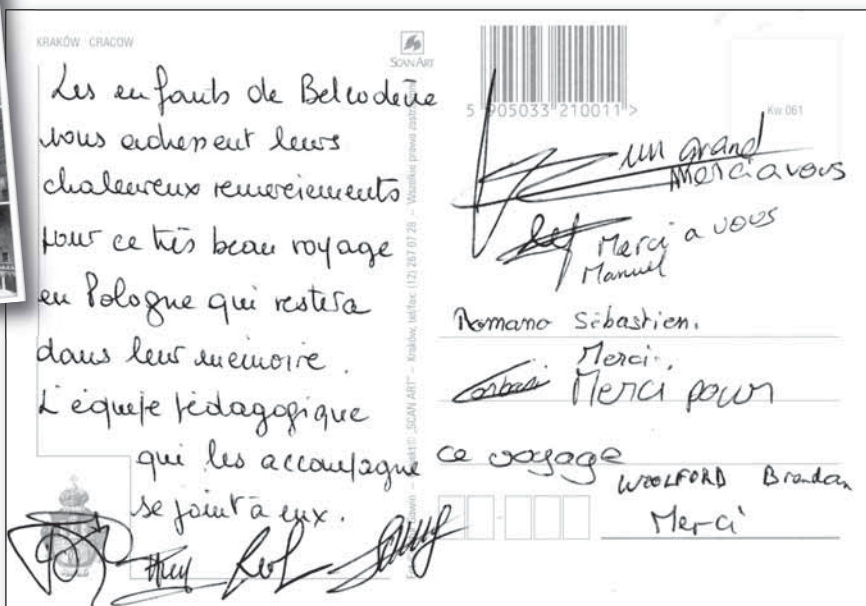 KRAKÓW · CRACOW
Les enfants de Belcodène
vous adressent leurs
chaleureux remerciements
pour ce très beau voyage
en Pologne qui restera
dans leur mémoire.
L'équipe pédagogique
qui les accompagne
se joint à eux.
SCAN ART
„SCAN ART” – Kraków, tel/fax: (12) 267 07 28 – Wszelkie prawa
5 905033 210011 >
Kw 061
un grand
Merci a vous
Merci a vous
Manuel
Romano Sébastien.
Merci.
Merci pour
ce voyage
WOOLFORD Brandan
Merci